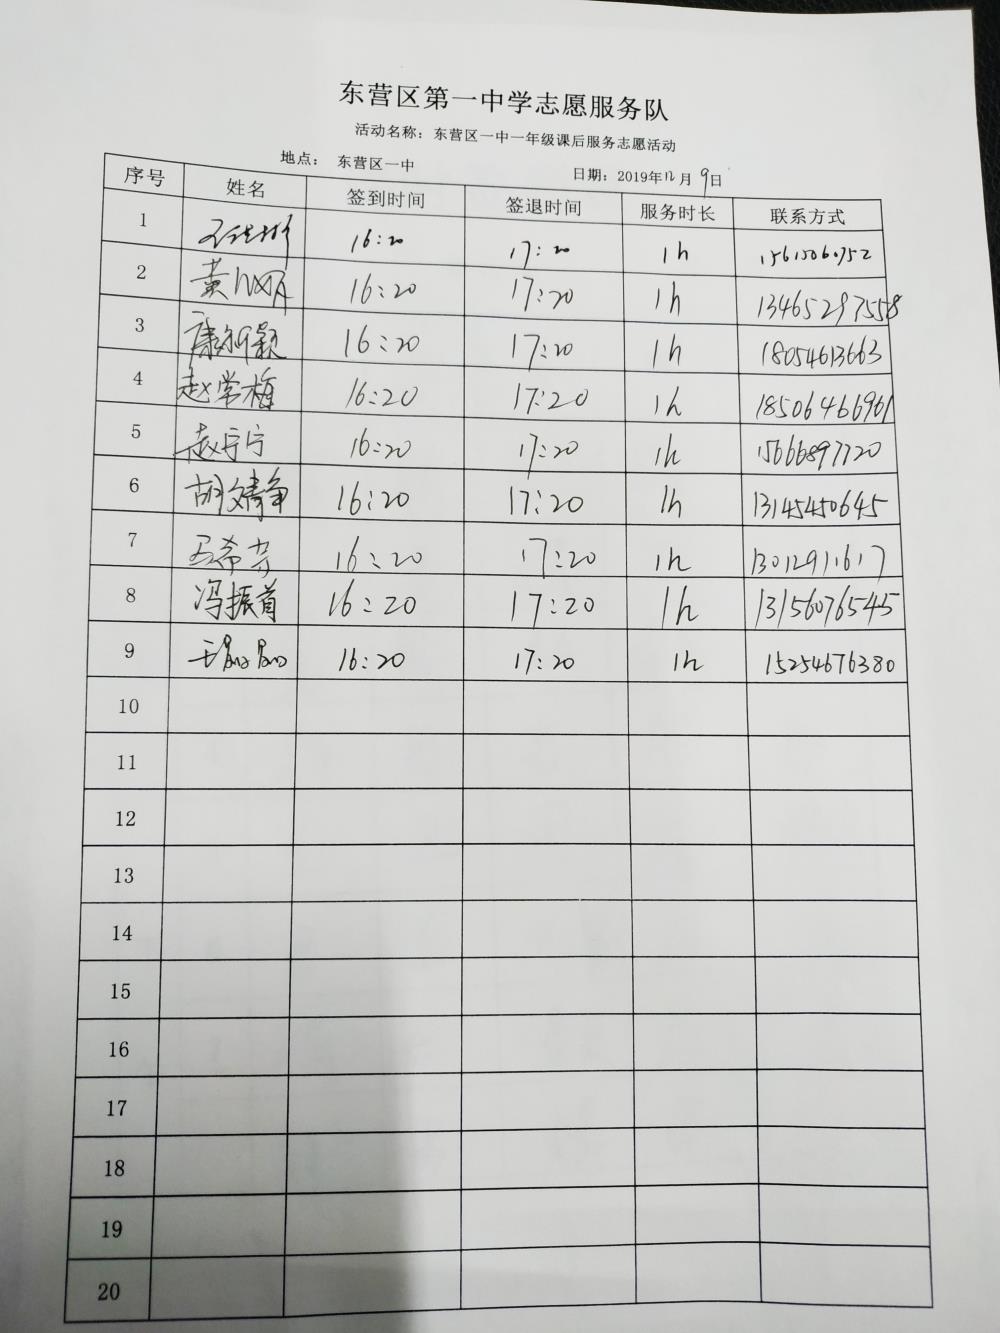 东营区第一中学志愿服务队
活动名称：东营区一中一年级课后服务志愿活动
地点： 东营区一中 日期：2019年12月9日
序号 姓名 签到时间 签退时间 服务时长 联系方式
1 16:20 17:20 1h 15615060752
2 黄 丽 16:20 17:20 1h 13465297558
3 康 颖 16:20 17:20 1h 18054613663
4 赵学梅 16:20 17:20 1h 18506466961
5 赵宁宁 16:20 17:20 1h 15666897720
6 胡文静 16:20 17:20 1h 13145450645
7 希芳 16:20 17:20 1h 13012911617
8 冯振首 16:20 17:20 1h 13156076545
9 王 16:20 17:20 1h 15254676380
10
11
12
13
14
15
16
17
18
19
20